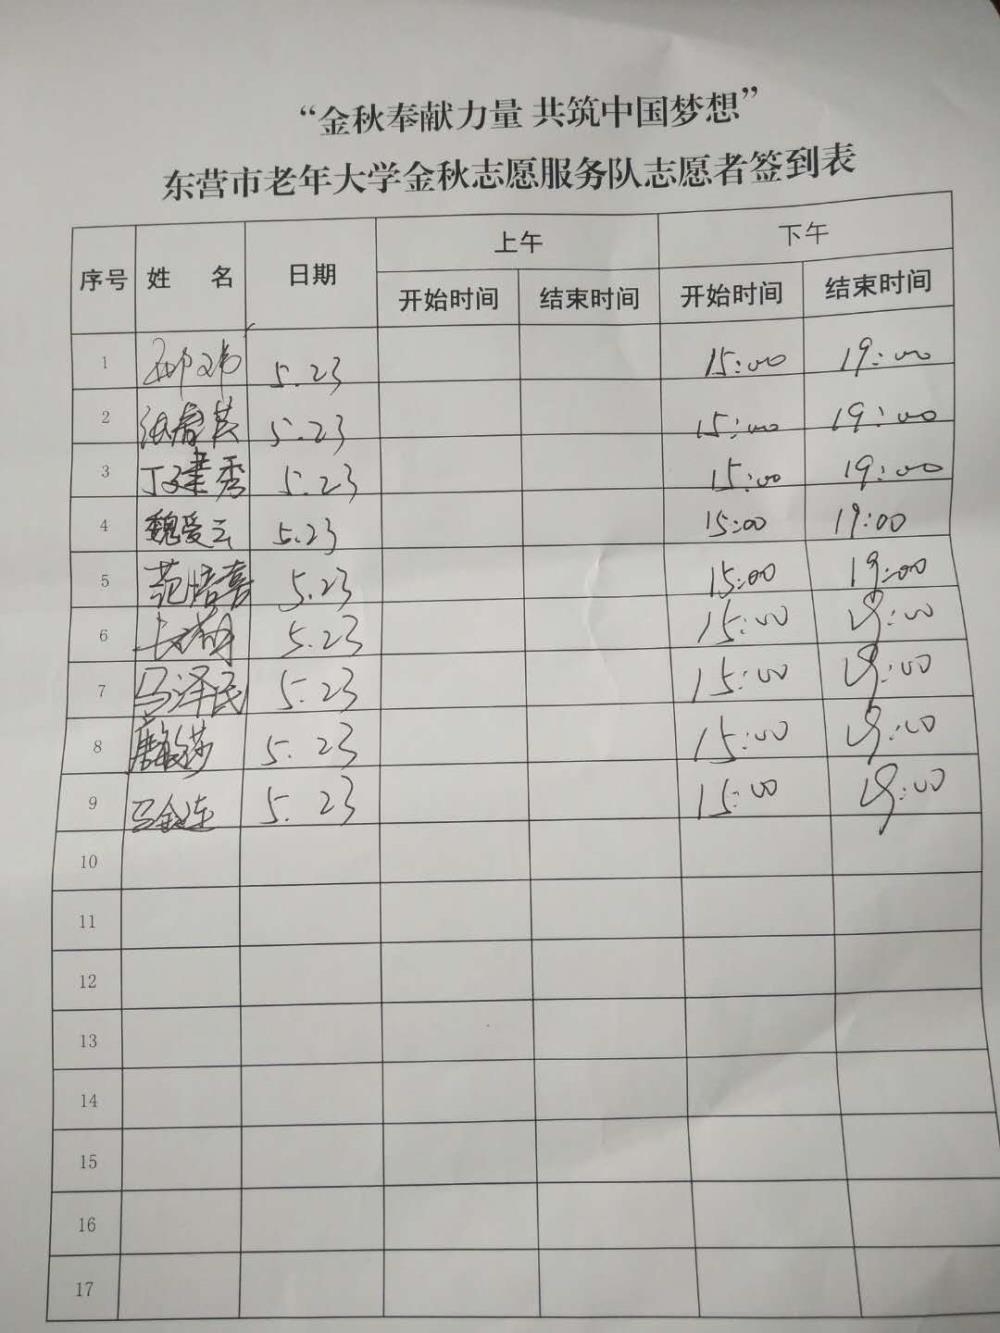 “金秋奉献力量 共筑中国梦想”
东营市老年大学金秋志愿服务队志愿者签到表
序号 姓 名 日期 上午 下午
开始时间 结束时间 开始时间 结束时间
1 5.23 15:00 19:00
2 5.23 15:00 19:00
3 丁建秀 5.23 15:00 19:00
4 魏爱云 5.23 15:00 19:00
5 范培喜 5.23 15:00 19:00
6 5.23 15:00 19:00
7 马泽民 5.23 15:00 19:00
8 5.23 15:00 19:00
9 马金连 5.23 15:00 19:00
10
11
12
13
14
15
16
17